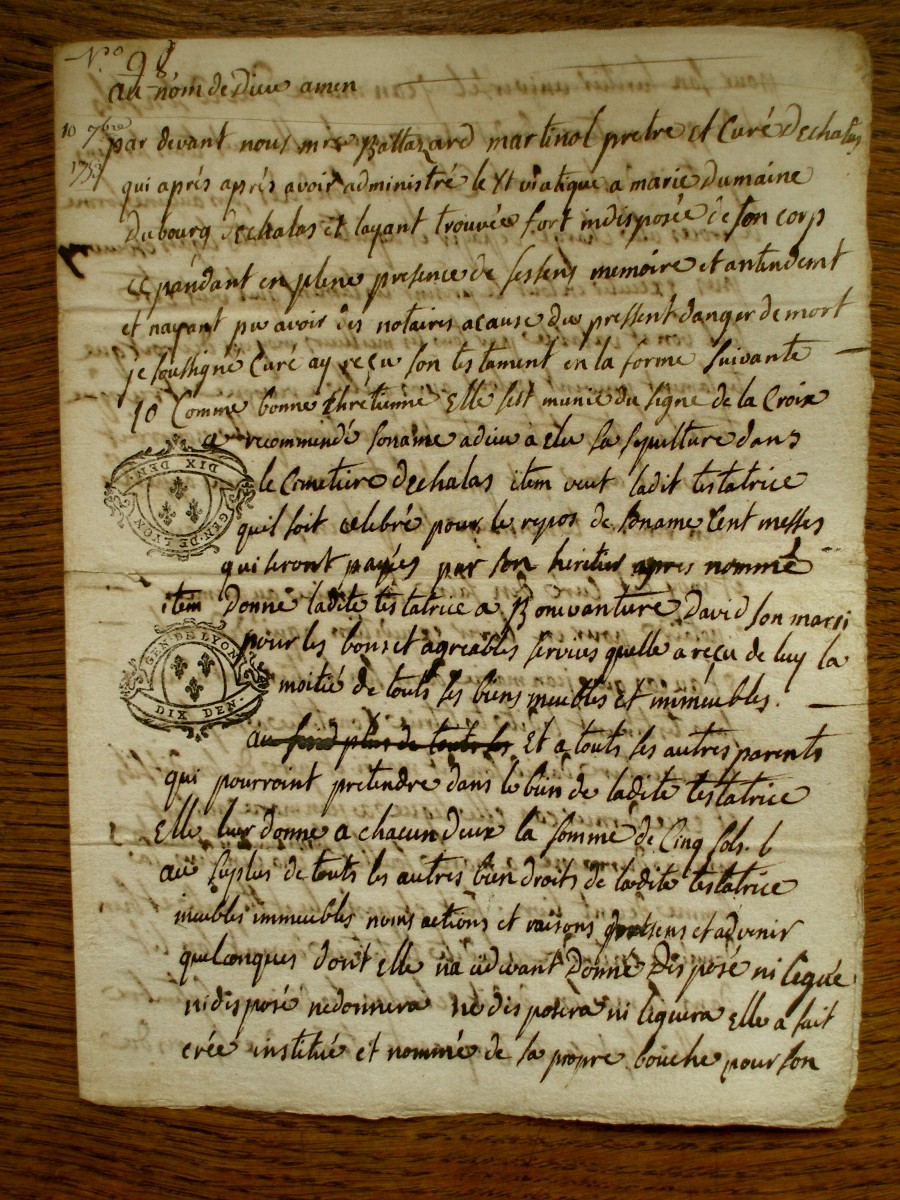 N.º 98
au nom de Dieu amen
10 7bre
1759
par devant nous mre Baltazard martinol pretre et Curé dechalas
qui aprés aprés avoir administré le St viatique a marie dumaine
Dubourg dechalas et layant trouvée fort indisposée de son corp
ce pandant en plene presence de ses sens memoire et antendemt
et nayant pu avoir des notaires acause du pressent danger de mort
je soussigné Curé ay reçu son testament en la forme suivante
1o Comme bonne Chrétienne Elle sest munie du signe de la Croix
a recommendé soname adieu a elu sa sepulture dans
le Cemetiere dechalas item veut ladit testatrice
quil soit celebré pour le repos de soname Cent messes
qui seront payés par son heritier apres nommé
item Donne ladite testatrice a Bonnavanture David son marri
pour les bons et agreables services quelle a reçu de luy la
moitié de touts ses biens meubles et immeubles.
au plus de touts les Et a touts ses autres parents
qui pourroint pretendre dans le bien de ladite testatrice
Elle leur donne a chacun deux la somme de Cinq sols.
au suplus de touts les autres bien droits de ladite testatrice
meubles immeubles noms actions et raisons presens et advenir
quelconques dont Elle na cidevant Donné Disposé ni legué
ni disposé nedonnera ne disposera ni leguera Elle a fait
crée institué et nommé de sa propre bouche pour son
GEN. DE LYON
DIX DEN.
GEN. DE LYON
DIX DEN.